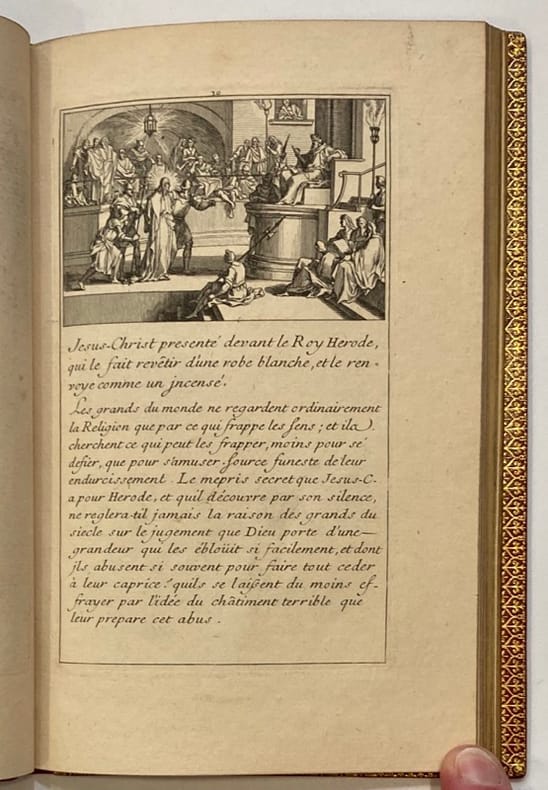 20
Jesus-Christ presenté devant le Roy Herode,
qui le fait revêtir d'une robe blanche, et le ren-
voye comme un jncensé.
Les grands du monde ne regardent ordinairement
la Religion que par ce qui frappe les sens; et ils
cherchent ce qui peut les frapper, moins pour s'é
difier, que pour s'amuser. Source funeste de leur
endurcissement. Le mepris secret que Jesus-C.
a pour Herode, et qu'il découvre par son silence,
ne reglera-til jamais la raison des grands du
siecle sur le jugement que Dieu porte d'une
grandeur qui les éblöüit si facilement, et dont
jls abusent si souvent pour faire tout ceder
à leur caprice? quils se laissent du moins ef-
frayer par l'idée du châtiment terrible que
leur prepare cet abus.